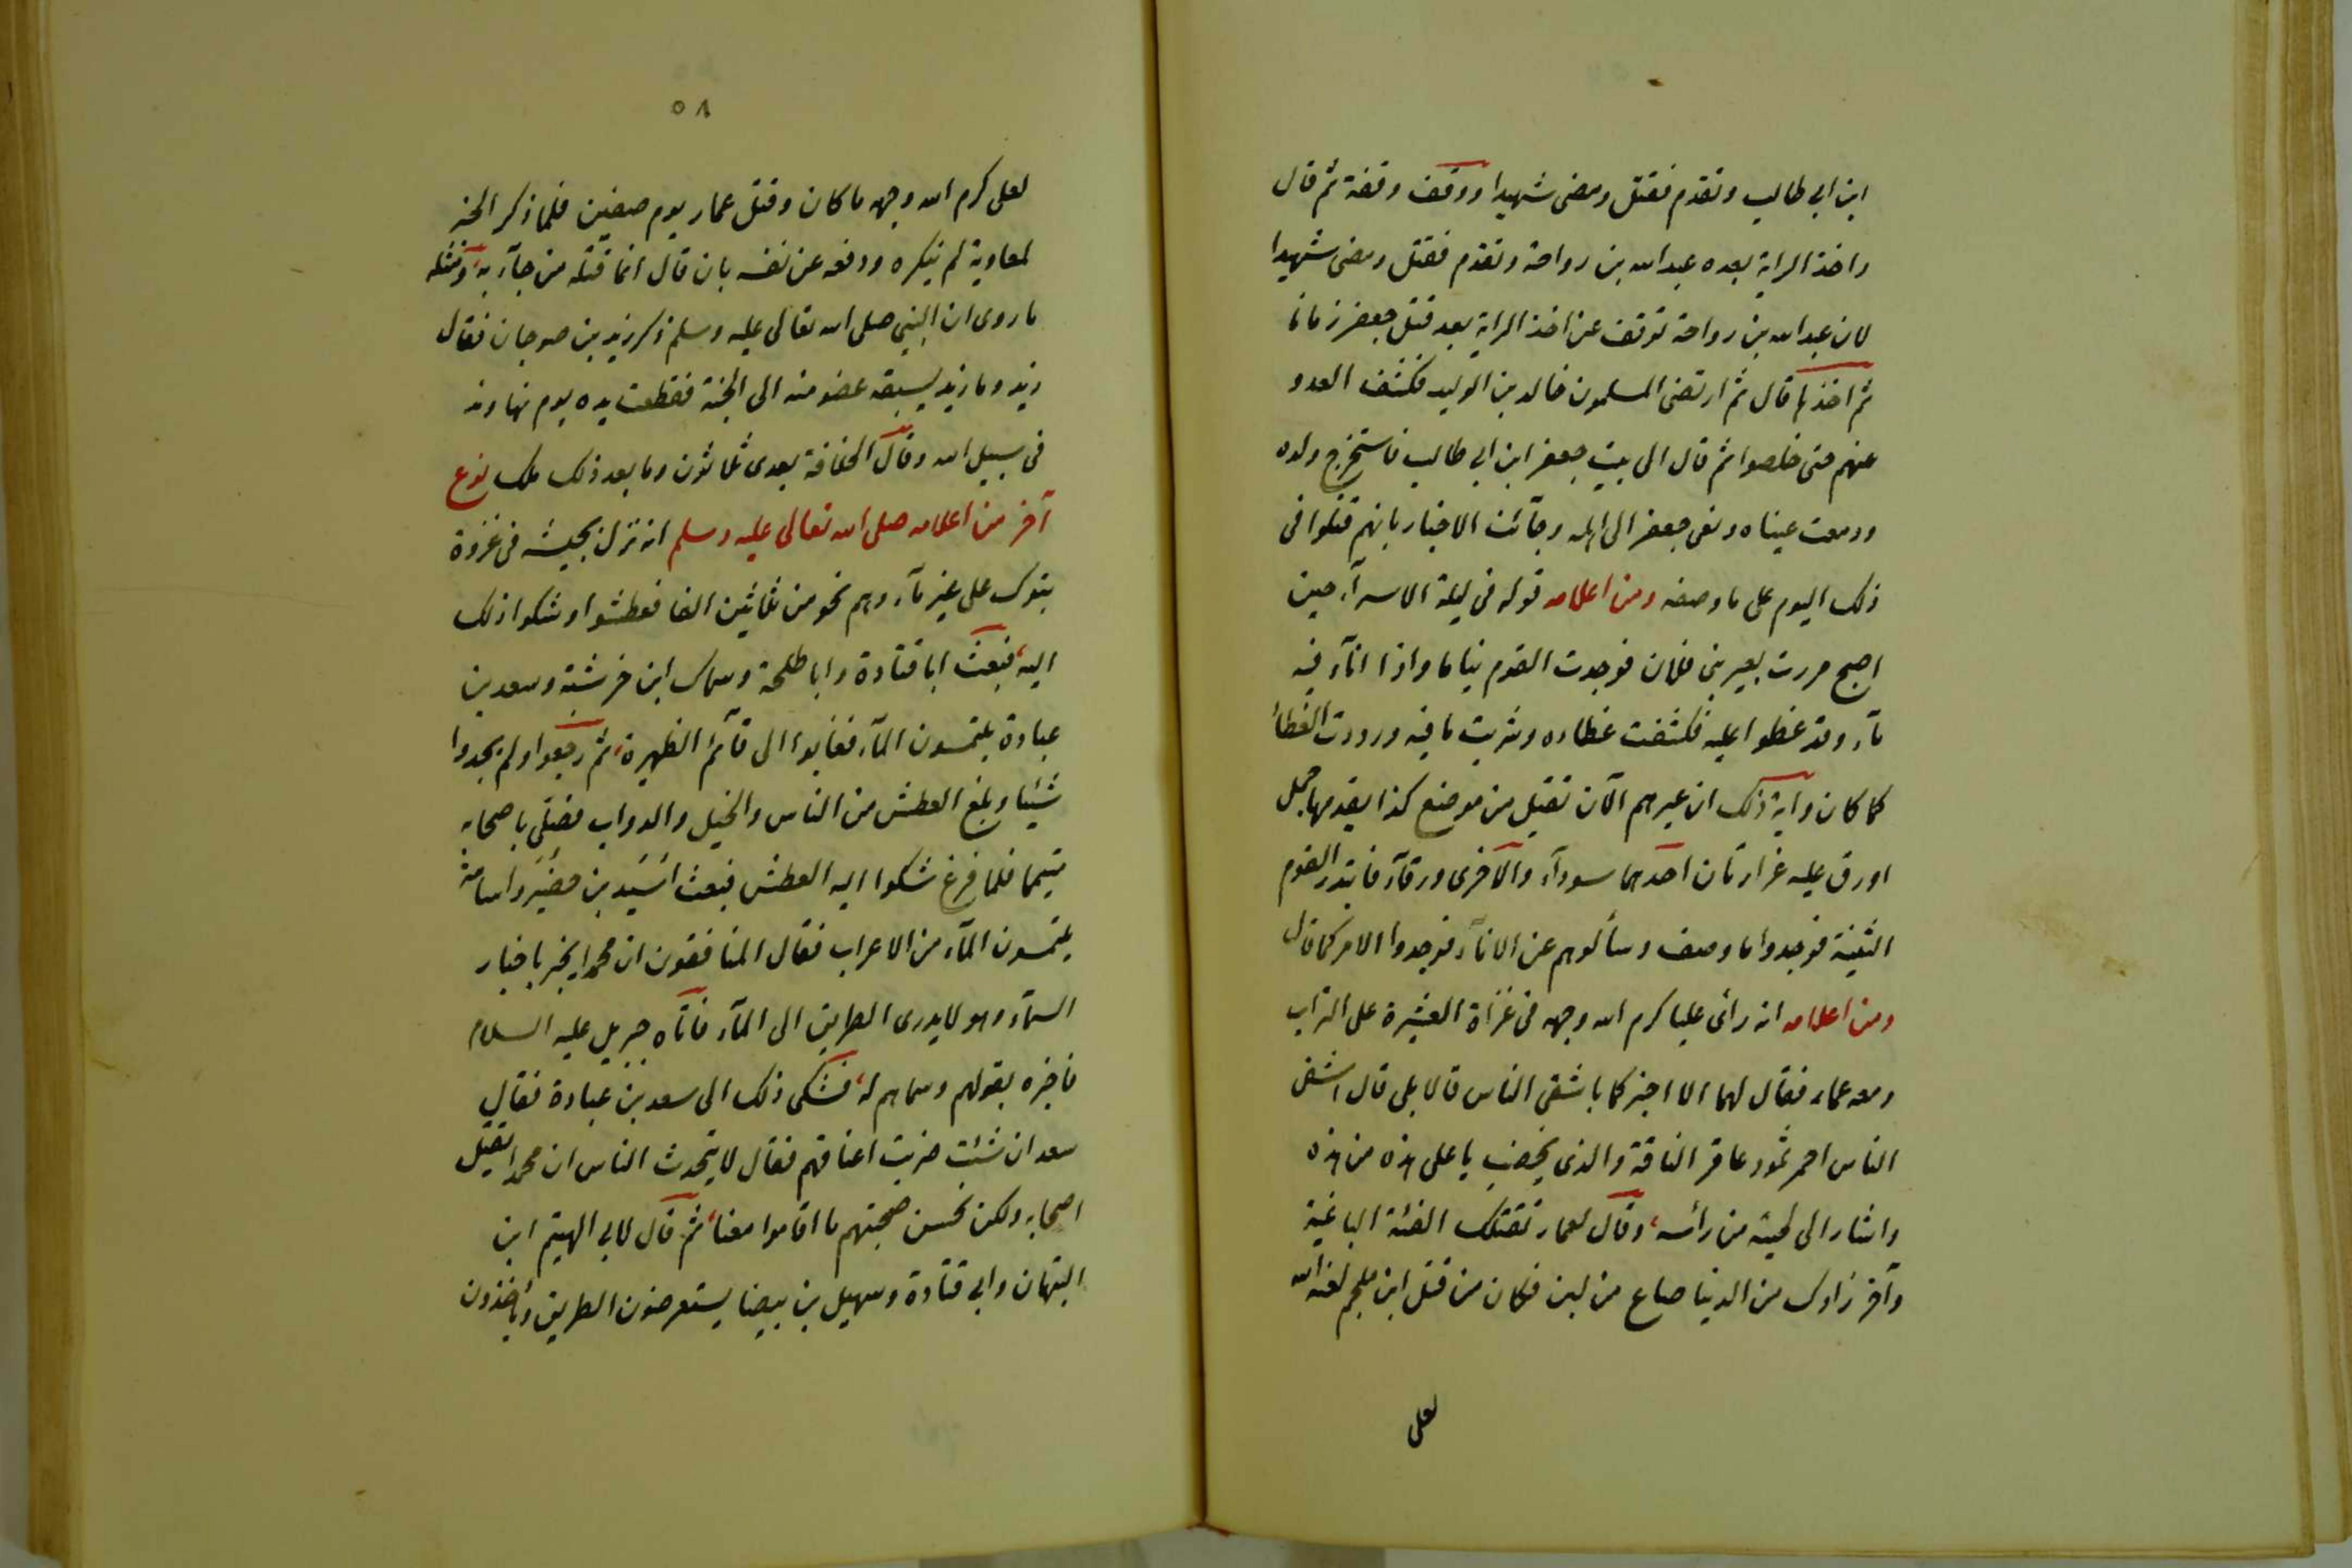 ابن ابى طالب وتقدم فقتل ومضى شهيدا ووقف وقفة ثم قال
واخذ الراية بعده عبدالله بن رواحة وتقدم فقتل ومضى شهيدا
لان عبدالله بن رواحة توقف عن اخذ الراية بعد قتل جعفر زمانا
ثم اخذها قال ثم ارتضى المسلمون خالد بن الوليد فكشف العدو
عنهم حتى خلصوا ثم قال الى بيت جعفر ابن ابى طالب فاستخرج ولده
ودمعت عيناه ونعى جعفر الى اهله وجآئت الاخبار بانهم قتلوا فى
ذلك اليوم على ما وصفه ومن اعلامه قوله فى ليلة الاسرآء حين
اصبح مررت بعير بنى فلان فوجدت القوم نياما واذا انآء فيه
مآء وقد غطوا عليه فكشفت غطاءه وشربت ما فيه ورددت الغطاء
كما كان وآية ذلك ان عيرهم الآن تقبل من موضع كذا يقدمها جمل
اورق عليه غرارتان احدهما سودآء والاخرى ورقآء فابتدر القوم
الثنية فوجدوا ما وصف وسألوهم عن الانآء فوجدوا الامر كما قال
ومن اعلامه انه رأى عليا كرم الله وجهه فى غزاة العشيرة على التراب
ومعه عمار فقال لهما الا اخبركما باشقى الناس قالا بلى قال اشقى
الناس احمر ثمود عاقر الناقة والذى يخضب يا على هذه من هذه
واشار الى لحيته من رأسه، وقال لعمار تقتلك الفئة الباغية
وآخر زادك من الدنيا صاع من لبن فكان من قتل ابن ملجم لعنه الله
لعلى
٥٨
لعلى كرم الله وجهه ما كان وقتل عمار يوم صفين فلما ذكر الخبر
لمعاوية لم ينكره ودفعه عن نفسه بان قال انما قتله من جآء به، ومثله
ما روى ان النبى صلى الله تعالى عليه وسلم ذكر زيد بن صوحان فقال
زيد وما زيد يسبقه عضو منه الى الجنة فقطعت يده يوم نهاوند
فى سبيل الله وقال الخلافة بعدى ثلاثون وما بعد ذلك ملك نوع
آخر من اعلامه صلى الله تعالى عليه وسلم انه نزل بجيشه فى غزوة
تبوك على غير مآء وهم نحو من ثلاثين الفا فعطشوا وشكوا ذلك
اليه، فبعث ابا قتادة وابا طلحة وسماك ابن خرشة وسعد بن
عبادة يلتمسون المآء فغابوا الى قآئم الظهيرة، ثم رجعوا ولم يجدوا
شيئا وبلغ العطش من الناس والخيل والدواب فصلى باصحابه
متيمما فلما فرغ شكوا اليه العطش فبعث اسيد بن حضير واسامة
يلتمسون المآء من الاعراب فقال المنافقون ان محمدا يخبر باخبار
السمآء وهو لا يدرى الطريق الى المآء فاتاه جبريل عليه السلام
فاخبره بقولهم وسماهم له، فشكى ذلك الى سعد بن عبادة فقال
سعد ان شئت ضربت اعناقهم فقال لا يتحدث الناس ان محمدا يقتل
اصحابه ولكن نحسن صحبتهم ما اقاموا معنا، ثم قال لابى الهيثم ابن
التيهان وابى قتادة وسهيل بن بيضا يستعرضون الطريق ويأخذون